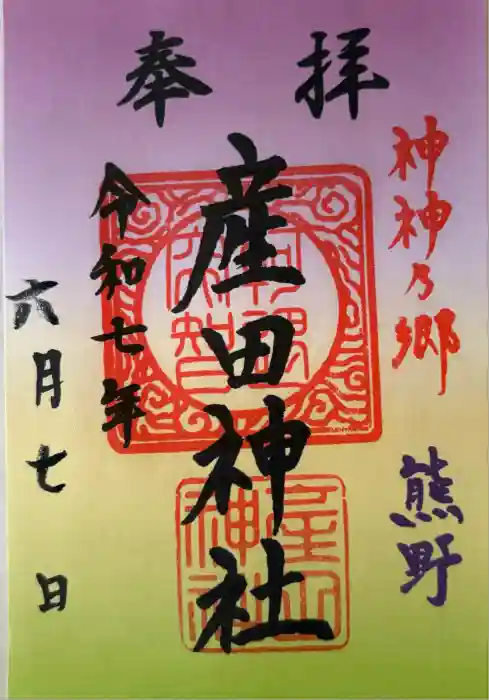 奉拝
神神乃郷
熊野
産田神社
令和七年
六月七日